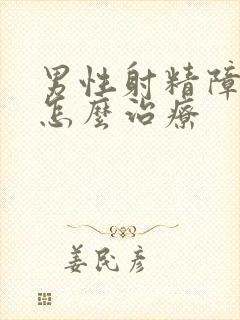 男性射精障
怎麼治療
姜民彦